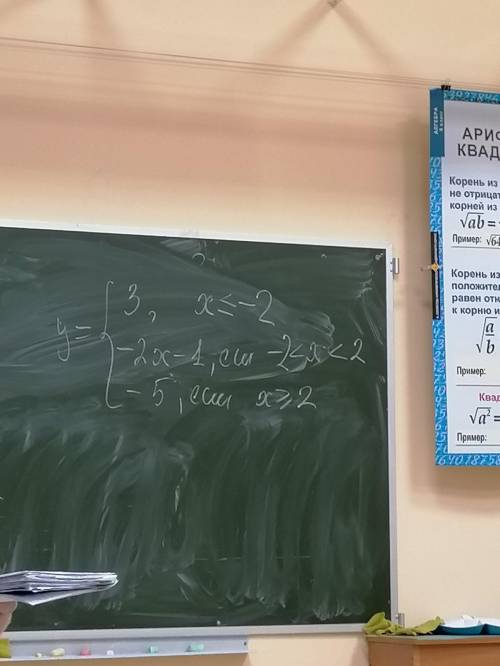 y = { 3, x ≤ -2
-2x-1, если -2<x<2
-5, если x ≥ 2
АЛГЕБРА
8 класс
АРИФ
КВАД
Корень из
не отрицат
корней из
√ab =
Пример: √64
Корень из
положител
равен отн
к корню и
√a/b
Пример:
Квад
√a² =
Пример: